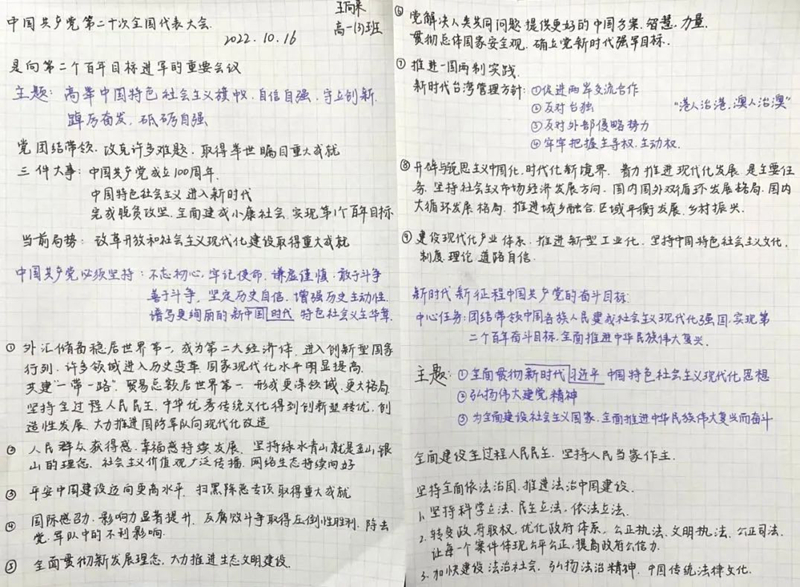 中国共产党第二十次全国代表大会.
高一(3)班
2022.10.16
是向第二个百年目标进军的重要会议
主题: 高举中国特色社会主义旗帜,自信自强、守正创新,
踔厉奋发、砥砺自强
党团结带领、攻克许多难题、取得举世瞩目重大成就
三件大事: 中国共产党成立100周年.
中国特色社会主义进入新时代
完成脱贫攻坚、全面建成小康社会、实现第1个百年目标
当前局势: 改革开放和社会主义现代化建设取得重大成就
中国共产党必须坚持: 不忘初心、牢记使命、谦虚谨慎、敢于斗争
善于斗争, 坚定历史自信, 增强历史主动性
谱写更绚丽的新中国时代特色社会主义华章.
① 外汇储备稳居世界第一, 成为第二大经济体, 进入创新型国家
行列, 许多领域进入历史变革 国家现代化水平明显提高.
共建"一带一路". 贸易总额居世界第一, 形成更深领域、更大格局.
坚持全过程人民民主, 中华优秀传统文化得到创新型转优, 创
造性发展, 大力推进国防军队向现代化改造
② 人民群众获得感、幸福感持续发展, 坚持绿水青山就是金山银
山的理念, 社会主义价值观广泛传播, 网络生态持续向好
③ 平安中国建设迈向更高水平, 扫黑除恶专项取得重大成就
④ 国际感召力、影响力显著提升, 反腐败斗争取得压倒性胜利, 除去
党、军队中的不利影响.
⑤ 全面贯彻新发展理念, 大力推进生态文明建设
⑥ 党解决人类共同问题提供更好的中国方案、智慧、力量.
贯彻总体国家安全观, 确立党新时代强军目标.
⑦ 推进一国两制实践.
新时代台湾管理方针: ①促进两岸交流合作
②反对台独 "港人治港,澳人治澳"
③反对外部侵略势力
④牢牢把握主导权、主动权.
⑧ 开辟马克思主义中国化、时代化新境界. 着力推进现代化发展, 是主要任
务, 坚持社会主义市场经济发展方向. 国内国外双循环发展格局. 国内
大循环发展格局, 推进城乡融合、区域平衡发展、乡村振兴.
⑨ 建设现代化产业体系、推进新型工业化、坚持中国特色社会主义文化、
制度、理论、道路自信.
新时代新征程中国共产党的奋斗目标:
中心任务: 团结带领中国各族人民要成社会主义现代化强国, 实现第
二个百年奋斗目标, 全面推进中华民族伟大复兴.
主题: ①全面贯彻新时代习近平中国特色社会主义现代化思想
②弘扬伟大建党精神
③为全面建设社会主义国家、全面推进中华民族伟大复兴而奋斗
全面建设全过程人民民主, 坚持人民当家作主.
坚持全面依法治国, 推进法治中国建设.
1. 坚持科学立法、民主立法、依法立法.
2. 转变政府职权, 优化政府体系, 公正执法、文明执法、公正司法.
让每个案件体现公平公正, 提高政府公信力.
3. 加快建设法治社会, 弘扬法治精神, 中国传统法律文化.